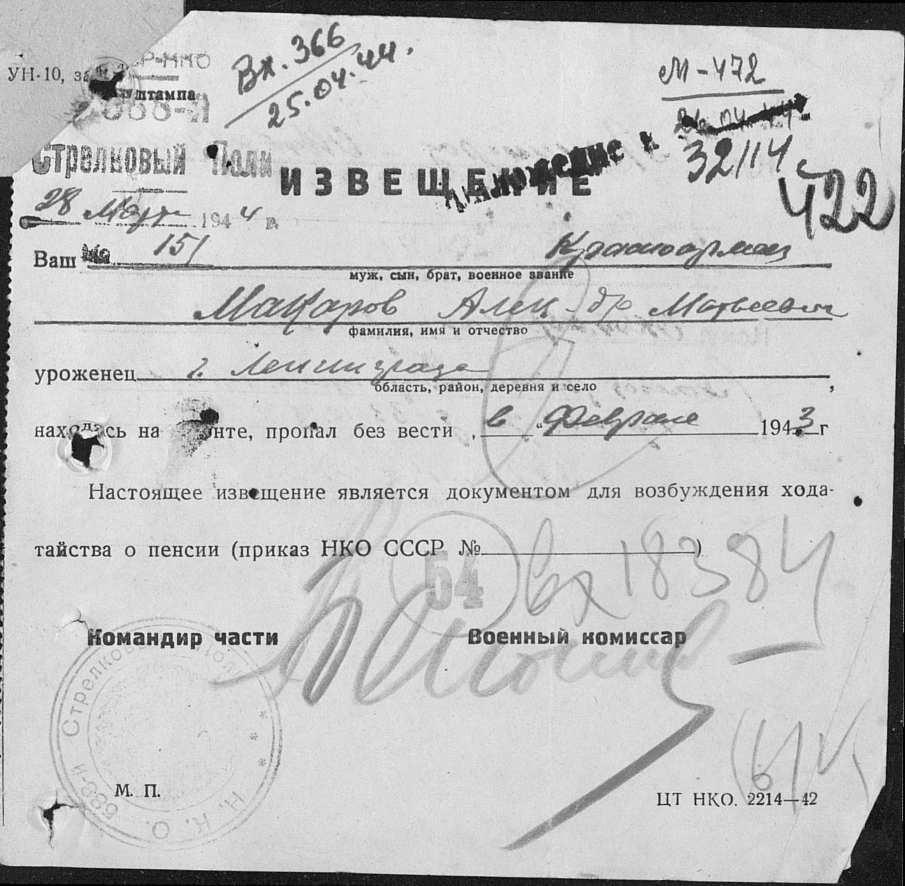 СР-НКО
УН-10,
штампа
Вх. 366
25.04.44.
М-472
32114с
422
Стрелковый Полк
ИЗВЕЩЕНИЕ
28 Март 1944 г.
Ваш № 151 Красноармеец
муж, сын, брат, военное звание
Макаров Алек-др Матвеевич
фамилия, имя и отчество
уроженец г. Ленинграда
область, район, деревня и село
находясь на фронте, пропал без вести в „Феврале 1943 г
Настоящее извещение является документом для возбуждения хода-
тайства о пенсии (приказ НКО СССР № )
54
вх 18384
Командир части Военный комиссар
688-й Стрелковый Полк * * * Н. К. О.
М. П.
ЦТ НКО. 2214—42